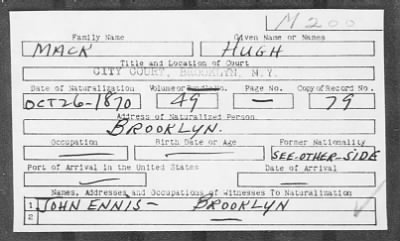 M 200
Family Name Given Name or Names
MACK HUGH
Title and Location of Court
CITY COURT, BROOKLYN, N.Y.
Date of Naturalization Volume or Page No. Copy of Record No.
OCT 26-1870 49 — 79
Address of Naturalized Person
BROOKLYN.
Occupation Birth Date or Age Former Nationality
— — SEE-OTHER-SIDE
Port of Arrival in the United States Date of Arrival
— —
Names, Addresses and Occupations of Witnesses To Naturalization
1 JOHN ENNIS- BROOKLYN
2 —